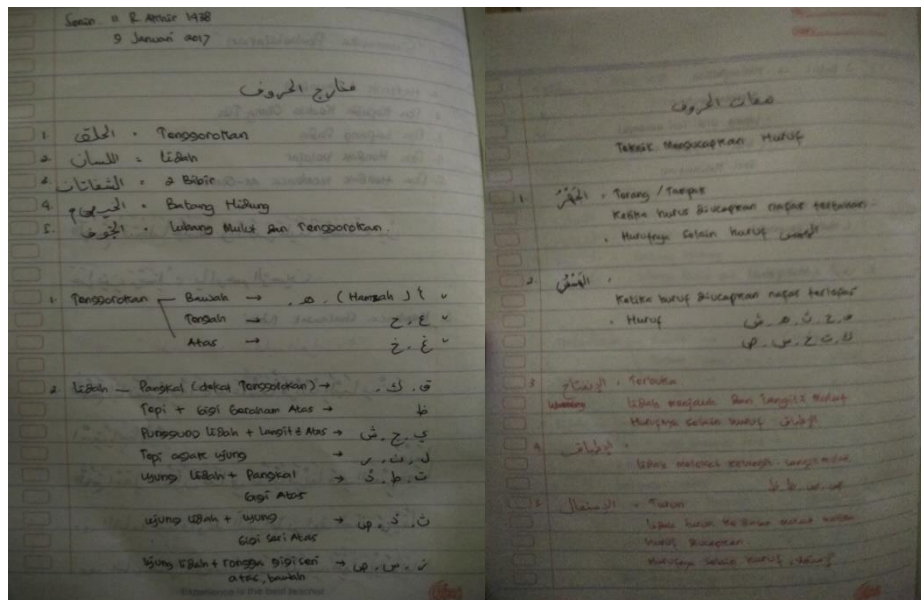 Senin 11 R. Akhir 1438
9 Januari 2017
مخارج الحروف
1. الحلق = Tenggorokan
2. اللسان = Lidah
3. الشفاتان = 2 Bibir
4. = Batang Hidung
5. الجوف = Lubang Mulut dan Tenggorokan.
1. Tenggorokan — Bawah → ه . ( Hamzah ) أ
Tengah → ع . ح
Atas → غ . خ
2. Lidah — Pangkal (dekat Tenggorokan) → ق . ك .
Tepi + Gigi Geraham Atas →
Punggung Lidah + Langit2 Atas → ي . ج . ش
Tepi agak ujung → ل . ن . ر
Ujung Lidah + Pangkal → ت . ط . د
Gigi Atas
ujung Lidah + ujung →
Gigi Seri Atas
Ujung Lidah + rongga gigi seri → ز . س . ص
atas, bawah
Experience is the best teacher
صفات الحروف
Teknik Mengucapkan Huruf
1. الجَهْرُ = Terang / Tampak
Ketika huruf diucapkan nafas tertahan
. Hurufnya selain huruf الهمس
2. الهَمْسُ =
Ketika huruf diucapkan nafas terlepas
. Huruf ف . ح . ث . ه . ش
خ . ص . س . ك . ت
3. الإنفتاح = Terbuka
Lidah menjauh dari langit2 mulut
Hurufnya selain huruf الإطباق
4. الإطباق =
Lidah melekat langit
ص . ض . ط . ظ
5. الإستفال = Turun
Lidah turun ke dasar mulut ketika
huruf diucapkan
Hurufnya selain huruf